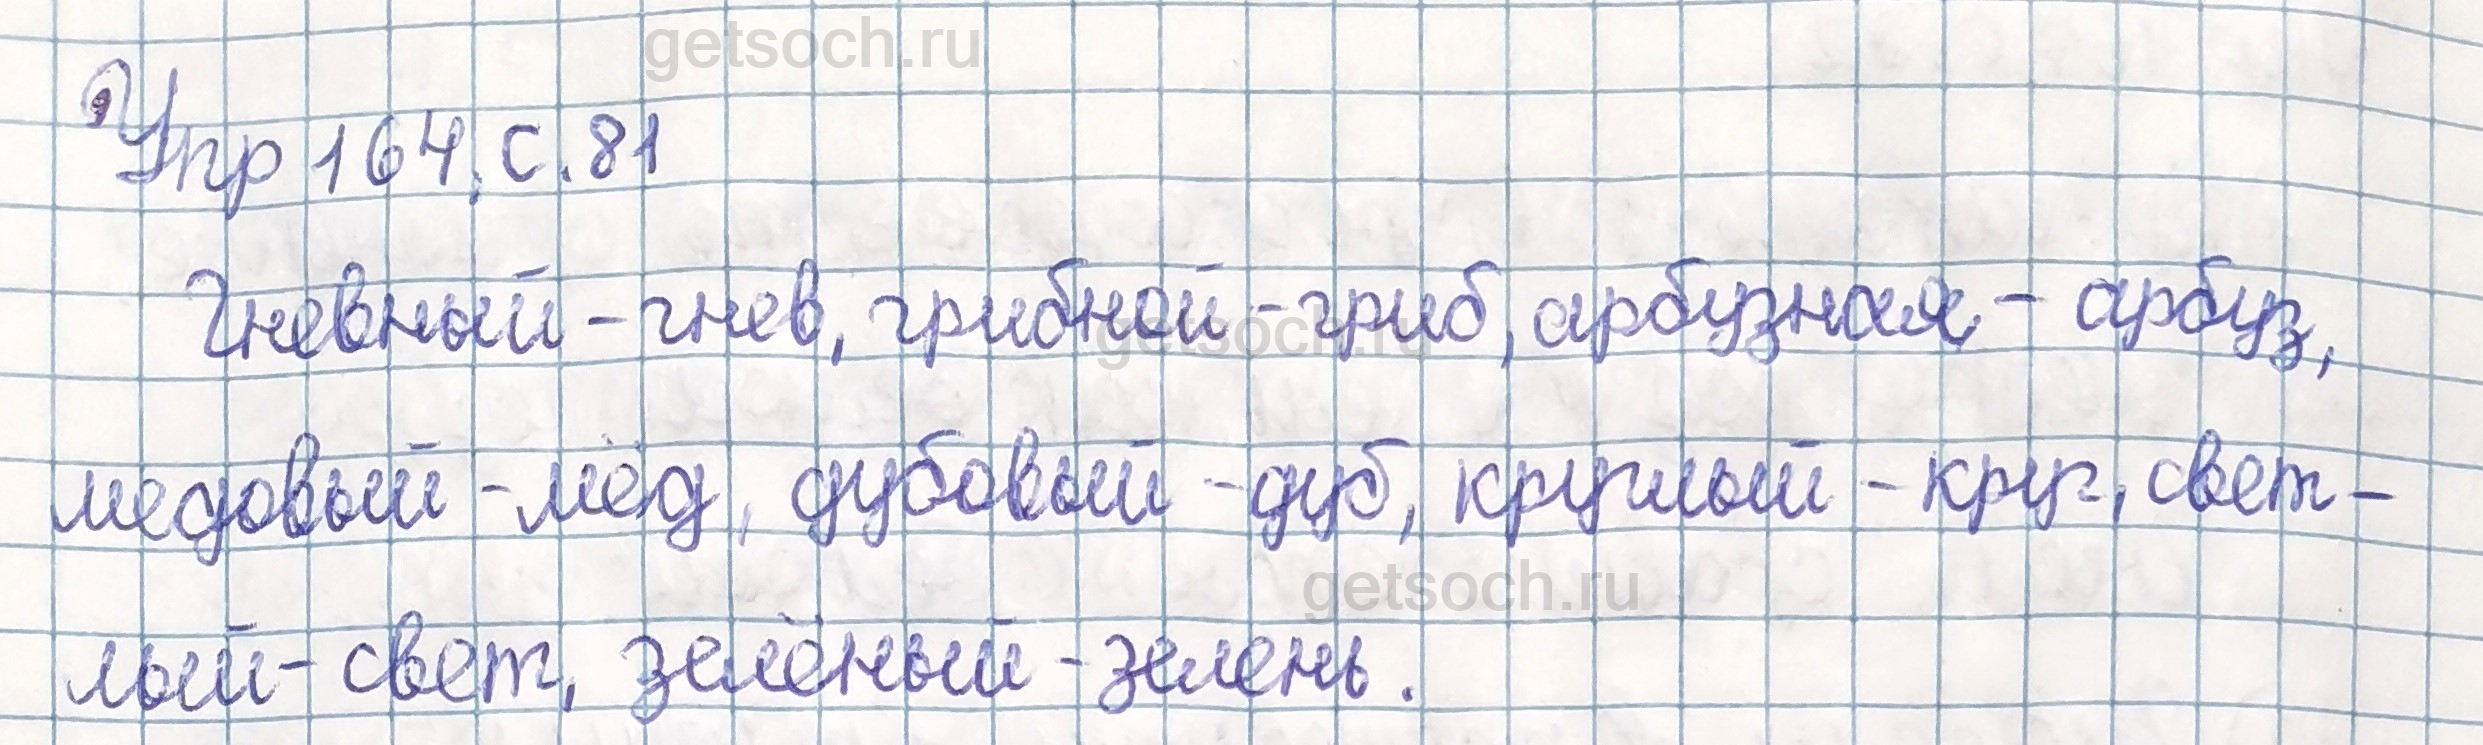 getsoch.ru
Упр 164, с. 81
Гневный - гнев, грибной - гриб, арбузная - арбуз,
getsoch.ru
медовый - мёд, дубовый - дуб, круглый - круг, свет-
getsoch.ru
лый - свет, зелёный - зелень.